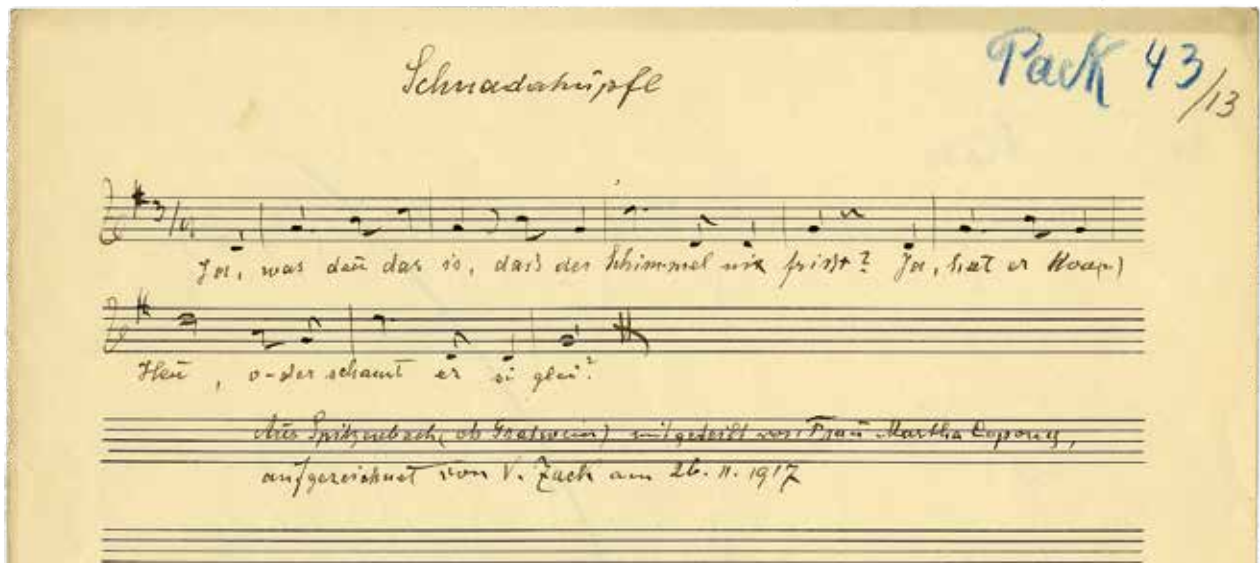 Schnadahüpfl
Pack 43/13
3/4
Ja, was deñ das is, dass der Schimmel nix frisst? Ja, hat er koan
Heu, o-der schamt er si glei?
Aus Spitzenbach (ob Gratwein) mitgeteilt von Frau Martha
aufgezeichnet von V. Zack am 26. 11. 1917